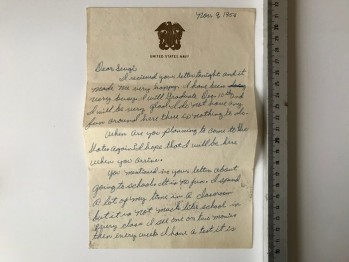 Nov. 9, 1956
UNITED STATES NAVY
Dear
I received your letter tonight and it
made me very happy. I have been
very busy. I will graduate Dec. 10th and
I will be very glad. I do not have any
fun around here there is nothing to do.
When are you planning to come to the
States again I hope that I will be here
when you arrive.
You mentioned in your letter about
going to school. It is no fun I spend
a lot of my time in a classroom
but it is not much like school in
every class I see me on two movies
then every week I have a test it is